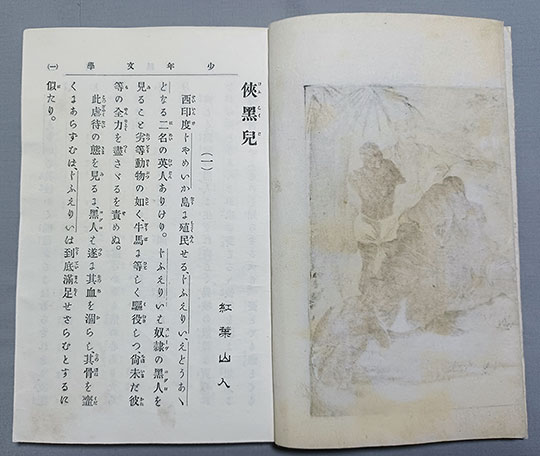 少年文學
(一)
俠黑兒
(一)
紅葉山人
西印度じやめいか島に殖民せる、じふえりい、えどうあゝ
どなる二名の英人ありけり。じふえりいは奴隷の黑人を
見ること劣等動物の如く、牛馬に等しく驅役しつ尙未だ彼
等の全力を盡さゞるを責めぬ。
此虐待の態を見るに、黑人は遂に其血を涸らし、其骨を韲
くにあらずむば、じふえりいは到底滿足せざらむとするに
似たり。